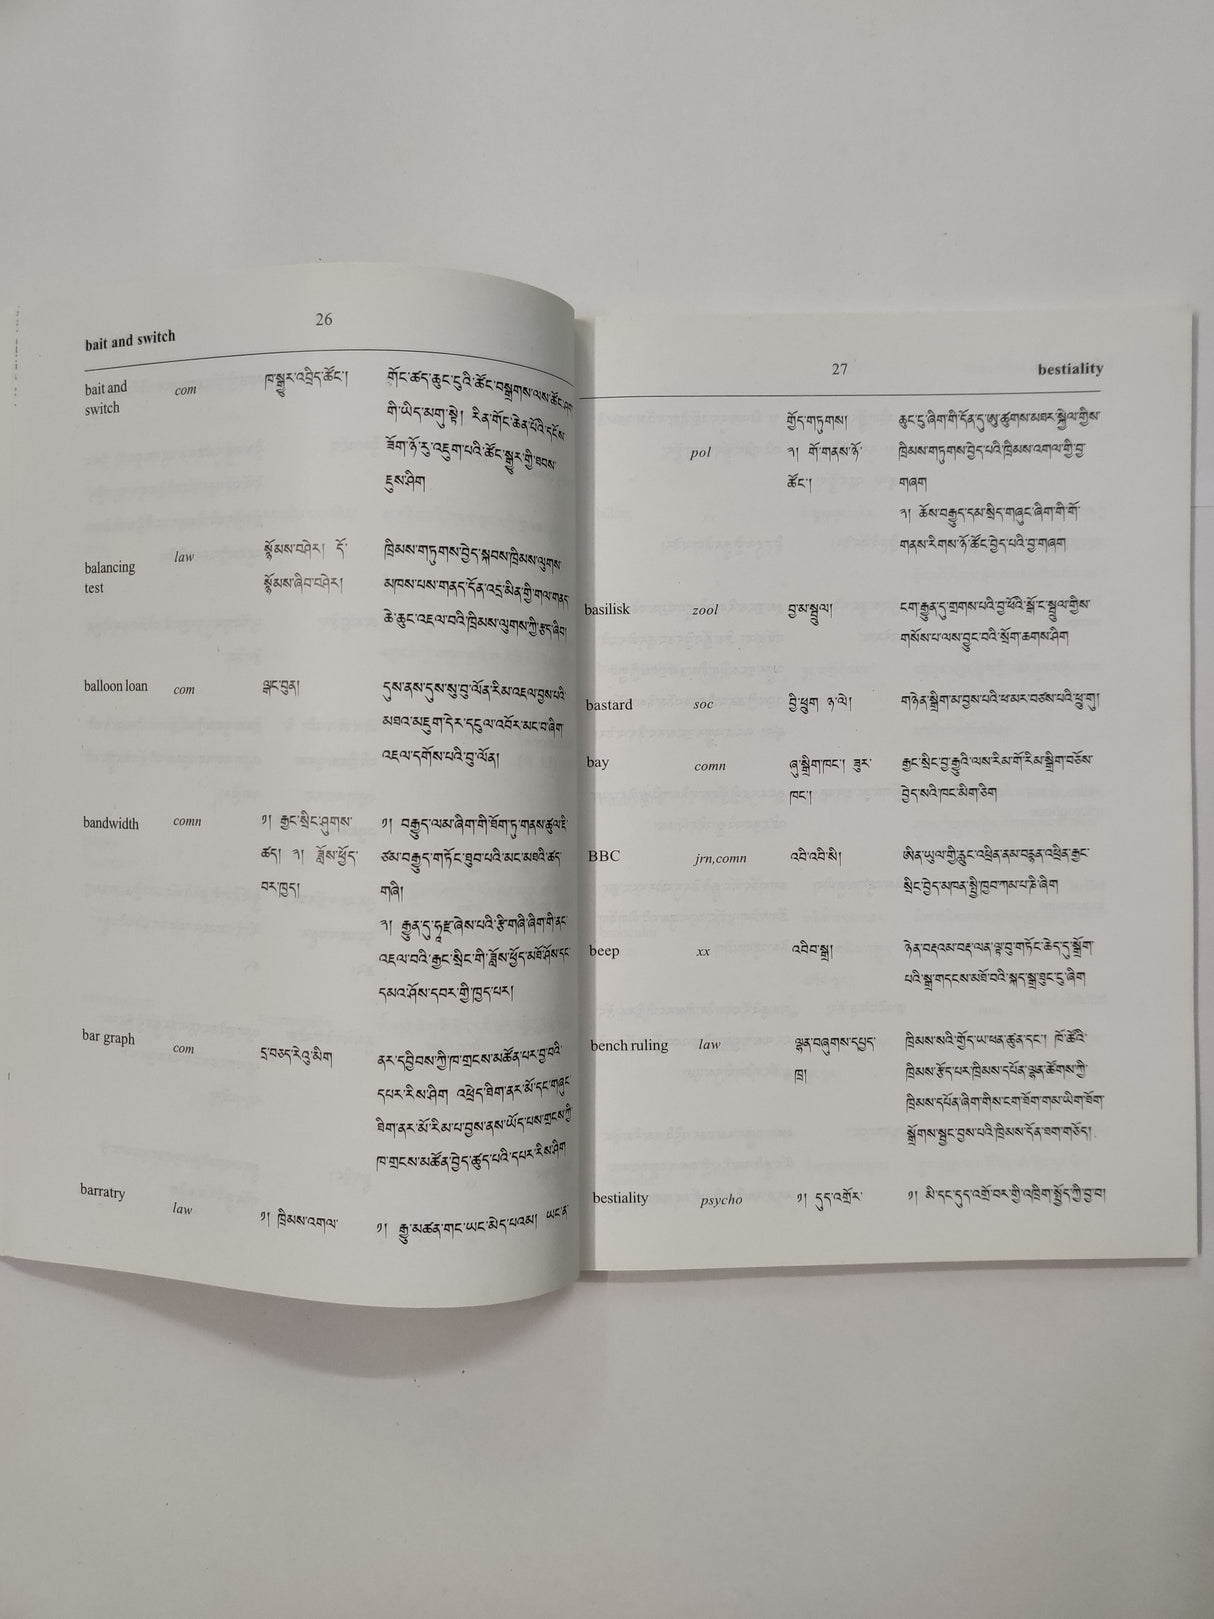 26
bait and switch
bait and
switch
com
ཁ་སྒྱུར་འབྲིད་ཚོང་།
གོང་ཚད་ཆུང་ངུའི་ཚོང་བསྒྲགས་ལས་ཚོང་ཤག
གི་ཡིད་མགུ་སྟེ། རིན་གོང་ཆེན་པོའི་དངོས་
ཟོག་ཉོ་རུ་འཇུག་པའི་ཚོང་སྒྱུར་གྱི་ཐབས་
ཇུས་ཤིག
balancing
test
law
སྙོམས་བཤེར། དོ་
སྙོམས་ཞིབ་བཤེར།
ཁྲིམས་གཏུགས་བྱེད་སྐབས་ཁྲིམས་ལུགས་
མཁས་པས་གནད་དོན་འདྲ་མིན་གྱི་གལ་གནད་
ཆེ་ཆུང་འཇལ་བའི་ཁྲིམས་ལུགས་ཀྱི་རྩད་ཞིབ།
balloon loan
com
ལྒང་བུན།
དུས་ནས་དུས་སུ་བུ་ལོན་རིམ་འཇལ་བྱས་པའི་
མཐའ་མཇུག་དེར་དངུལ་འབོར་མང་བ་ཞིག
འཇལ་དགོས་པའི་བུ་ལོན།
bandwidth
comn
༡། རྒྱང་སྲིང་ཤུགས་
ཚད། ༢། ཟློས་ཕྱོད་
བར་ཁྱད།
༡། བརྒྱུད་ལམ་ཞིག་གི་ཐོག་ཏུ་གནས་ཚུལ་ཇི་
ཙམ་བརྒྱུད་གཏོང་ཐུབ་པའི་མང་མཐའི་ཚད་
གཞི།
༢། རྒྱུན་དུ་ཧཱརྫ་ཞེས་པའི་རྩི་གཞི་ཞིག་གི་ནང་
འཇལ་བའི་རྒྱང་སྲིང་གི་ཟློས་ཕྱོད་མཐོ་ཤོས་དང་
དམའ་ཤོས་དབར་གྱི་ཁྱད་པར།
bar graph
com
དྲ་བཅད་རེའུ་མིག
ནར་དབྱིབས་ཀྱི་ཁ་གྲངས་མཚོན་པར་བྱ་བའི་
དཔར་རིས་ཤིག འཕྲེད་ཐིག་ནར་མོ་དང་གཞུང་
ཐིག་ནར་མོ་རིམ་པ་བྱས་ནས་ཡོད་པས་གྲངས་ཀྱི་
ཁ་གྲངས་མཚོན་བྱེད་ཚུད་པའི་དཔར་རིས་ཤིག
barratry
law
༡། ཁྲིམས་འགལ་
༡། རྒྱུ་མཚན་གང་ཡང་མེད་པའམ། ཡང་ན་
27
bestiality
གྱོད་གཏུགས།
ཆུང་ངུ་ཞིག་གི་དོན་དུ་ཨུ་ཚུགས་མཐར་སྐྱེལ་གྱིས་
pol
༢། གོ་གནས་ཉོ་
ཚོང་།
ཁྲིམས་གཏུགས་བྱེད་པའི་ཁྲིམས་འགལ་གྱི་བྱ་
གཞག
༢། ཆོས་བརྒྱུད་དམ་སྲིད་གཞུང་ཞིག་གི་གོ་
གནས་རིགས་ཉོ་ཚོང་བྱེད་པའི་བྱ་གཞག
basilisk
zool
བྱ་མ་སྦྲུལ།
ངག་རྒྱུན་དུ་གྲགས་པའི་བྱ་ཕོའི་སྒོ་ང་སྦྲུལ་གྱིས་
གསོས་པ་ལས་བྱུང་བའི་སྲོག་ཆགས་ཤིག
bastard
soc
བྱི་ཕྲུག ཉ་ལེ།
གཉེན་སྒྲིག་མ་བྱས་པའི་ཕ་མར་བཙས་པའི་ཕྲུ་གུ།
bay
comn
ཞུ་སྒྲིག་ཁང་། ཟུར་
ཁང་།
རྒྱང་སྲིང་བྱ་རྒྱུའི་ལས་རིམ་གོ་རིམ་སྒྲིག་བཅོས་
བྱེད་སའི་ཁང་མིག་ཅིག
BBC
jrn,comn
འབི་འབི་སི།
ཨིན་ཡུལ་གྱི་རླུང་འཕྲིན་ནམ་བརྙན་འཕྲིན་རྒྱང་
སྲིང་བྱེད་མཁན་སྤྱི་ཁྱབ་ཀམ་པ་ཎི་ཞིག
beep
xx
འབིབ་སྒྲ།
ཉེན་བརྡའམ་བརྡ་ལན་ལྟ་བུ་གཏོང་ཆེད་དུ་སྒྲོག་
པའི་སྒྲ་གདངས་མཐོ་བའི་སྐད་སྒྲ་ཐུང་ངུ་ཞིག
bench ruling
law
ལྷན་བཞུགས་དཔྱད་
ཁྲ།
ཁྲིམས་སའི་གྱོད་ཡ་ཕན་ཚུན་དང་། ཁོ་ཚོའི་
ཁྲིམས་རྩོད་པར་ཁྲིམས་དཔོན་ལྷན་ཚོགས་ཀྱི་
ཁྲིམས་དཔོན་ཞིག་གིས་ངག་ཐོག་གམ་ཡིག་ཐོག་
སྒྲོགས་སྦྱང་བྱས་པའི་ཁྲིམས་དོན་ཐག་གཅོད།
bestiality
psycho
༡། དུད་འགྲོར་
༡། མི་དང་དུད་འགྲོ་བར་གྱི་འཁྲིག་སྤྱོད་ཀྱི་བྱ་བ།